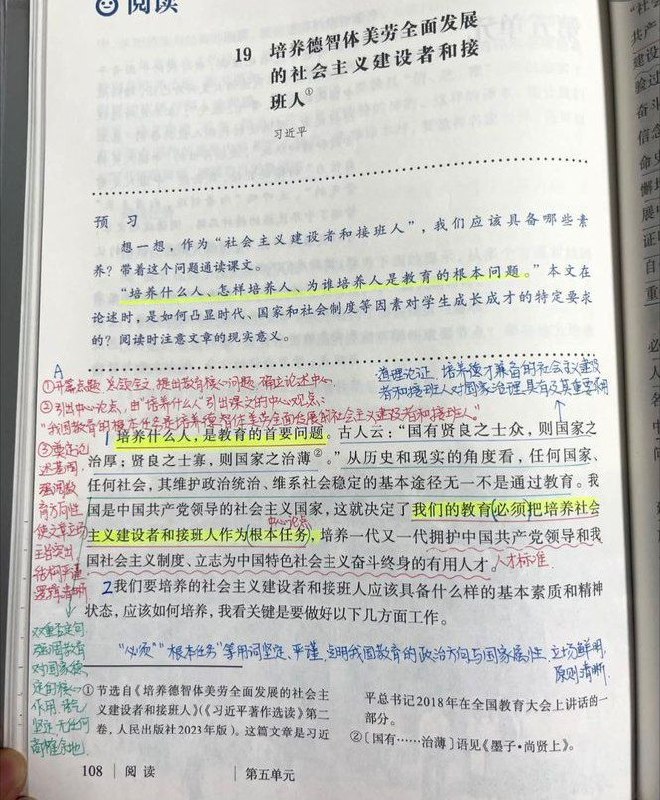 阅读
19 培养德智体美劳全面发展
的社会主义建设者和接
班人①
习近平
预 习
想一想,作为“社会主义建设者和接班人”,我们应该具备哪些素
养?带着这个问题通读课文。
“培养什么人、怎样培养人、为谁培养人是教育的根本问题。”本文在
论述时,是如何凸显时代、国家和社会制度等因素对学生成长成才的特定要求
的?阅读时注意文章的现实意义。
A
①开篇点题 总领全文 提出教育核心问题 确立论述中心
②引出中心论点,由“培养什么人”引出课文中心观点:
“我国教育的根本任务是培养德智体美劳全面发展的社会主义建设者和接班人”
道理论证,培养德才兼备的社会主义建设
者和接班人对国家治理具有及其重要作用
③奠定论
述基调
强调教
育方向性
使文章立场
结构严谨
逻辑清晰
1 培养什么人,是教育的首要问题。古人云:“国有贤良之士众,则国家之
治厚;贤良之士寡,则国家之治薄②。”从历史和现实的角度看,任何国家、
任何社会,其维护政治统治、维系社会稳定的基本途径无一不是通过教育。我
国是中国共产党领导的社会主义国家,这就决定了我们的教育(必须)把培养社会
中心论点
主义建设者和接班人作为根本任务,培养一代又一代拥护中国共产党领导和我
国社会主义制度、立志为中国特色社会主义奋斗终身的有用人才。人才标准
2 我们要培养的社会主义建设者和接班人应该具备什么样的基本素质和精神
状态,应该如何培养,我看关键是要做好以下几方面工作。
双重否定句
强调教育
对国家稳
定的核心
作用 语气
坚定 无任何
商榷余地
“必须”“根本任务”等用词坚定、严谨 点明我国教育的政治方向与国家属性 立场鲜明
原则清晰
①节选自《培养德智体美劳全面发展的社会主
义建设者和接班人》(《习近平著作选读》第二
卷,人民出版社2023年版)。这篇文章是习近
平总书记2018年在全国教育大会上讲话的一
部分。
②〔国有……治薄〕语见《墨子·尚贤上》。
108 阅读 第五单元